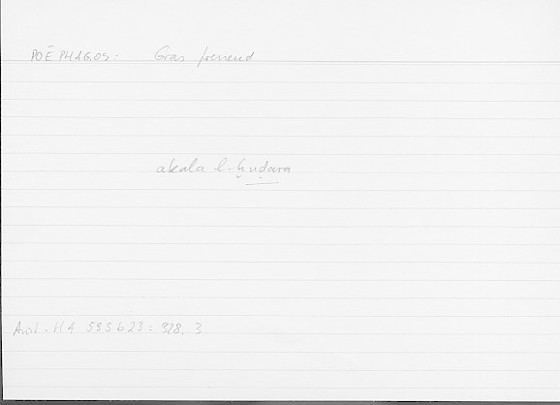 POĒPHAGOS: Gras fressend
akala l-ḫuḍara
Arist. HA 595b23: 328, 3